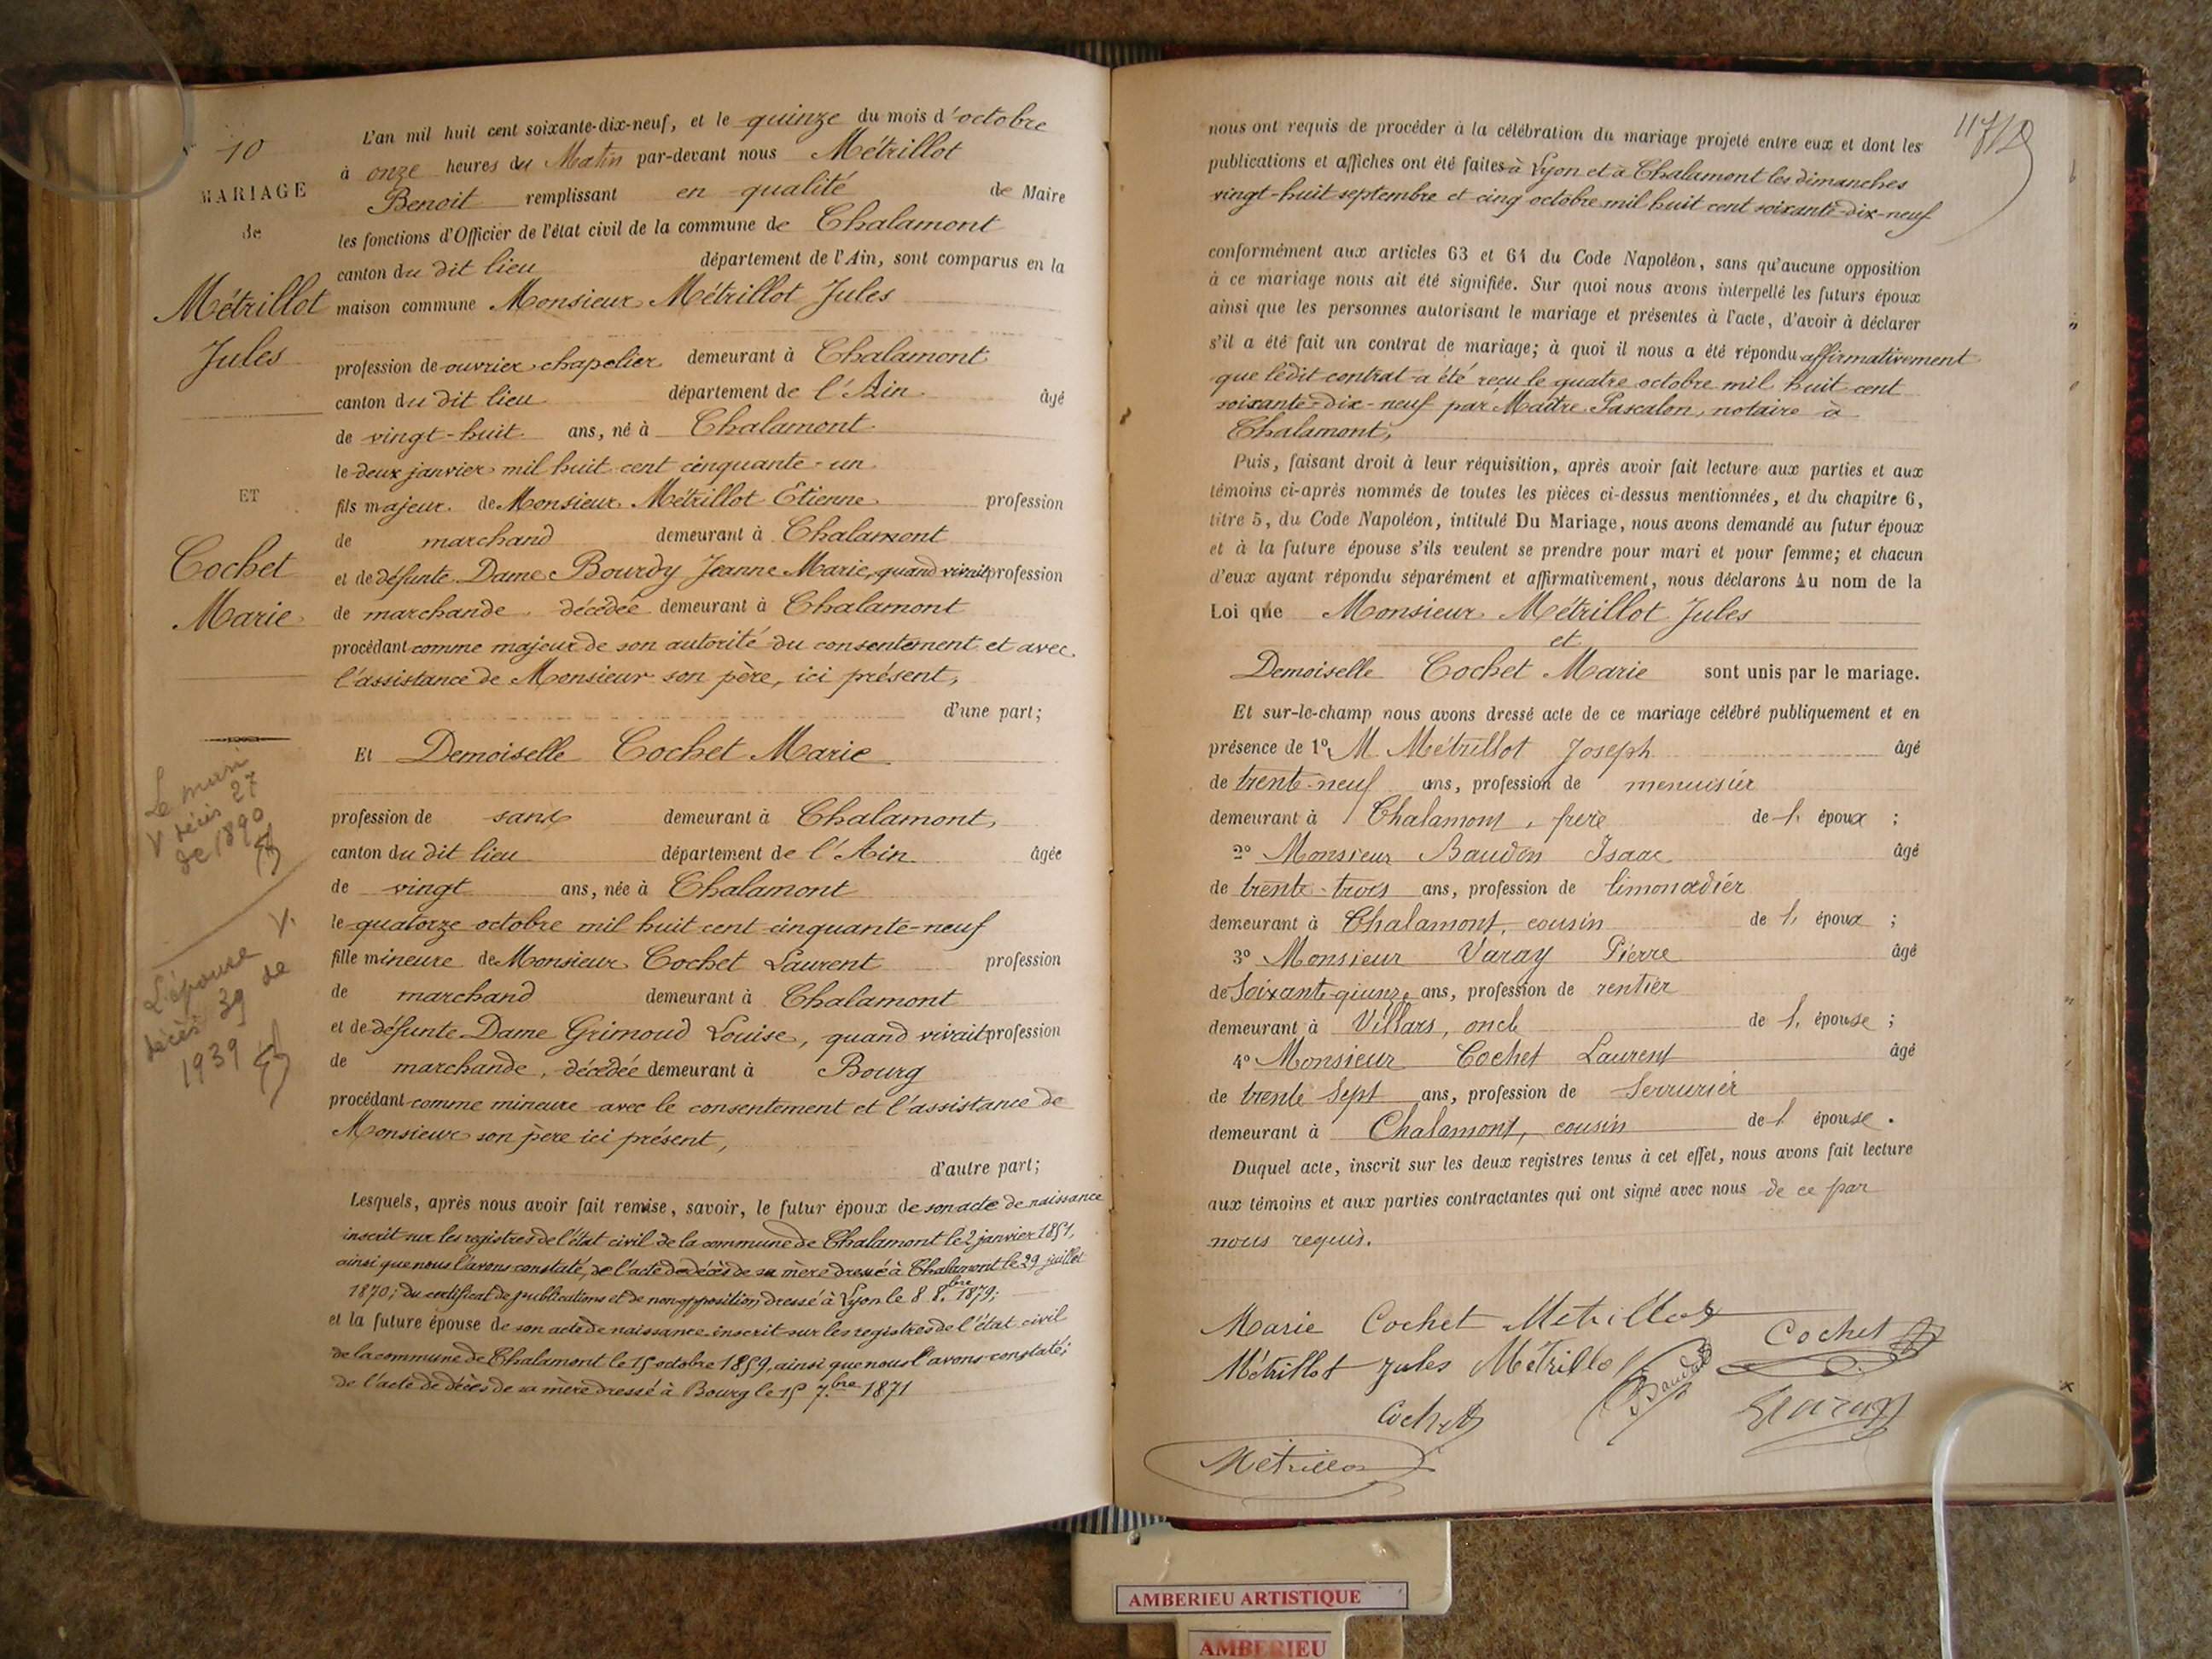 10
MARIAGE
de
Métrillot
Jules
ET
Cochet
Marie
Le mari
V décès 27
de 1890
L'épouse V.
décès 39 de
1939
L'an mil huit cent soixante-dix-neuf, et le quinze du mois d'octobre
à onze heures du Matin par-devant nous Métrillot
Benoit remplissant en qualité de Maire
les fonctions d'Officier de l'état civil de la commune de Chalamont
canton du dit lieu département de l'Ain, sont comparus en la
maison commune Monsieur Métrillot Jules
profession de ouvrier chapelier demeurant à Chalamont
canton du dit lieu département de l'Ain âgé
de vingt-huit ans, né à Chalamont
le deux janvier mil huit cent cinquante-un
fils majeur de Monsieur Métrillot Etienne profession
de marchand demeurant à Chalamont
et de défunte Dame Bourdy Jeanne Marie, quand vivait profession
de marchande, décédée demeurant à Chalamont
procédant comme majeur de son autorité du consentement et avec
l'assistance de Monsieur son père, ici présent,
d'une part;
Et Demoiselle Cochet Marie
profession de sans demeurant à Chalamont,
canton du dit lieu département de l'Ain âgée
de vingt ans, née à Chalamont
le quatorze octobre mil huit cent cinquante-neuf
fille mineure de Monsieur Cochet Laurent profession
de marchand demeurant à Chalamont
et de défunte Dame Grimoud Louise, quand vivait profession
de marchande, décédée demeurant à Bourg
procédant comme mineure avec le consentement et l'assistance de
Monsieur son père ici présent,
d'autre part;
Lesquels, après nous avoir fait remise, savoir, le futur époux de son acte de naissance
inscrit sur les registres de l'état civil de la commune de Chalamont le 2 janvier 1851,
ainsi que nous l'avons constaté, de l'acte de décès de sa mère dressé à Chalamont le 29 juillet
1870; du certificat de publications et de non opposition dressé à Lyon le 8 8.bre 1879;
et la future épouse de son acte de naissance inscrit sur les registres de l'état civil
de la commune de Chalamont le 15 octobre 1859, ainsi que nous l'avons constaté;
de l'acte de décès de sa mère dressé à Bourg le 15 7.bre 1871
nous ont requis de procéder à la célébration du mariage projeté entre eux et dont les
publications et affiches ont été faites à Lyon et à Chalamont les dimanches
vingt-huit septembre et cinq octobre mil huit cent soixante-dix-neuf
conformément aux articles 63 et 64 du Code Napoléon, sans qu'aucune opposition
à ce mariage nous ait été signifiée. Sur quoi nous avons interpellé les futurs époux
ainsi que les personnes autorisant le mariage et présentes à l'acte, d'avoir à déclarer
s'il a été fait un contrat de mariage; à quoi il nous a été répondu affirmativement
que ledit contrat a été reçu le quatre octobre mil huit cent
soixante-dix-neuf par Maître Pascalon, notaire à
Chalamont,
Puis, faisant droit à leur réquisition, après avoir fait lecture aux parties et aux
témoins ci-après nommés de toutes les pièces ci-dessus mentionnées, et du chapitre 6,
titre 5, du Code Napoléon, intitulé Du Mariage, nous avons demandé au futur époux
et à la future épouse s'ils veulent se prendre pour mari et pour femme; et chacun
d'eux ayant répondu séparément et affirmativement, nous déclarons Au nom de la
Loi que Monsieur Métrillot Jules
et
Demoiselle Cochet Marie sont unis par le mariage.
Et sur-le-champ nous avons dressé acte de ce mariage célébré publiquement et en
présence de 1º M Métrillot Joseph âgé
de trente-neuf ans, profession de menuisier
demeurant à Chalamont, frère de l' époux ;
2º Monsieur Baudin Isaac âgé
de trente-trois ans, profession de limonadier
demeurant à Chalamont, cousin de l' époux ;
3º Monsieur Varay Pierre âgé
de soixante-quinze ans, profession de rentier
demeurant à Villars, oncle de l' épouse ;
4º Monsieur Cochet Laurent âgé
de trente sept ans, profession de serrurier
demeurant à Chalamont, cousin de l' épouse .
Duquel acte, inscrit sur les deux registres tenus à cet effet, nous avons fait lecture
aux témoins et aux parties contractantes qui ont signé avec nous de ce par
nous requis.
Marie Cochet Métrillot Cochet
Métrillot Jules Métrillot
Cochet
Métrillot
AMBERIEU ARTISTIQUE
AMBERIEU